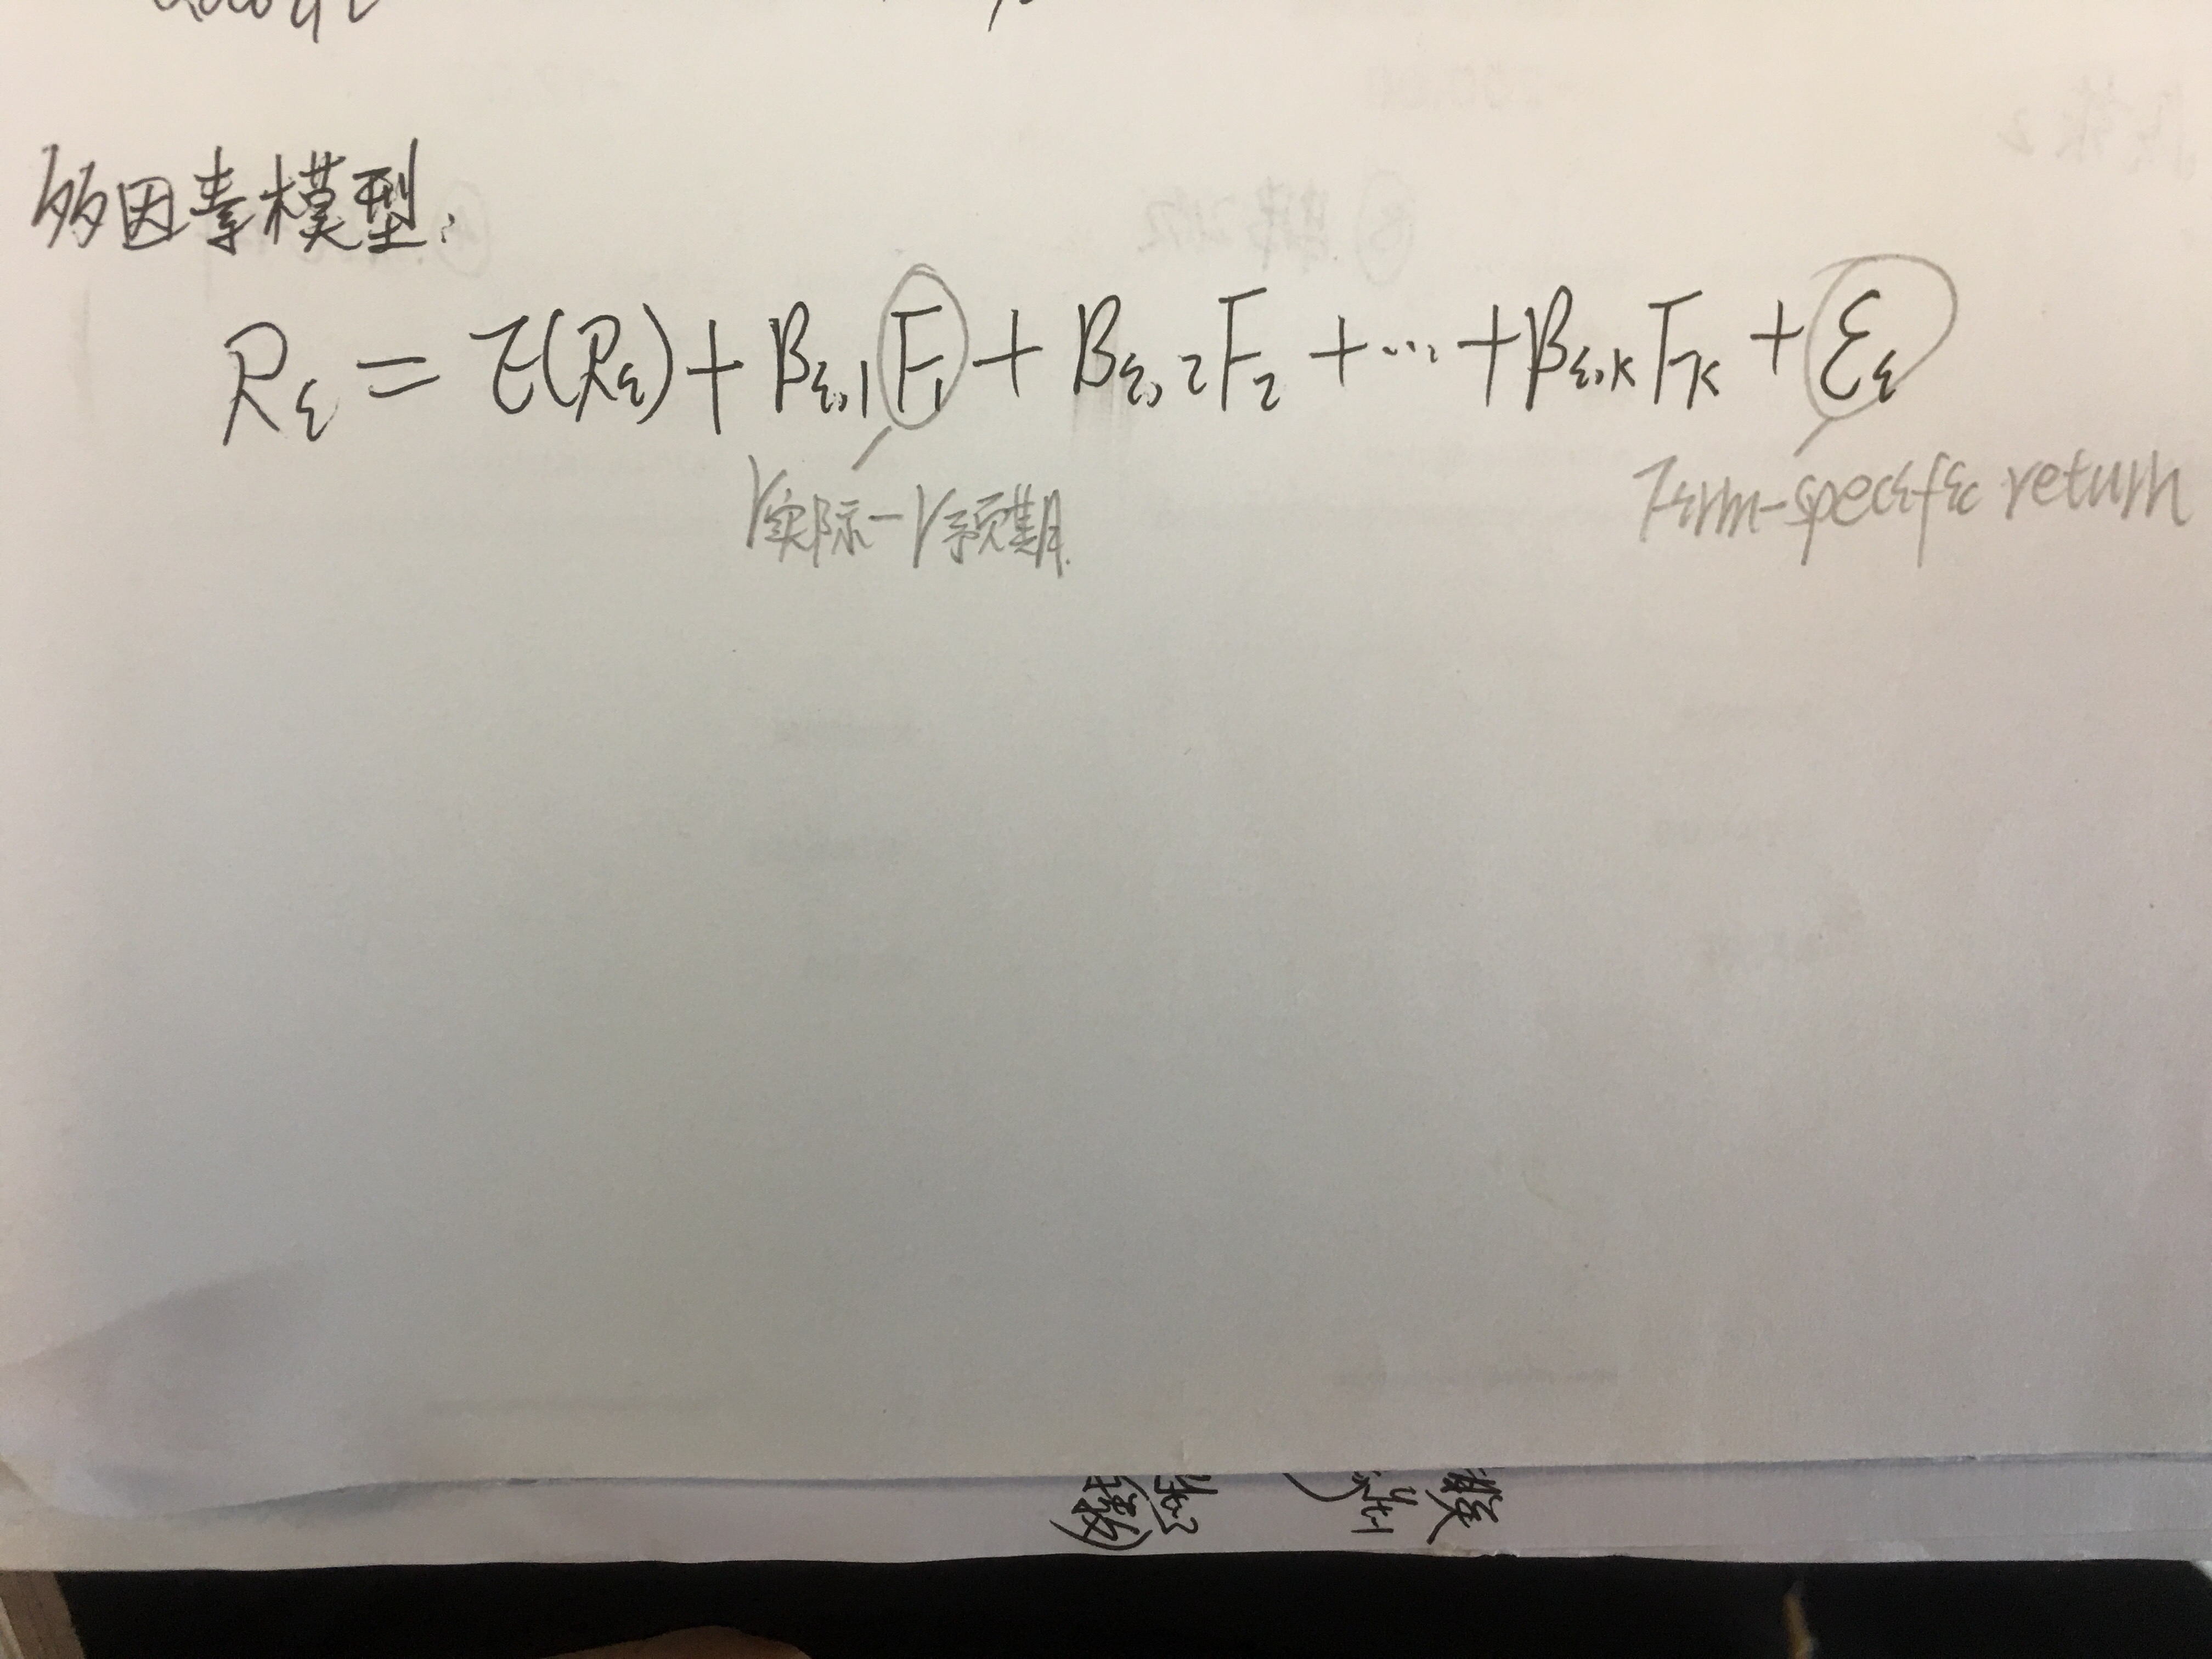 多因素模型.
Rε = E(Rε) + Bε,1 F1 + Bε,2 F2 + ... + βε,k Fk + εε
r实际 - r预期.
Firm-specific return